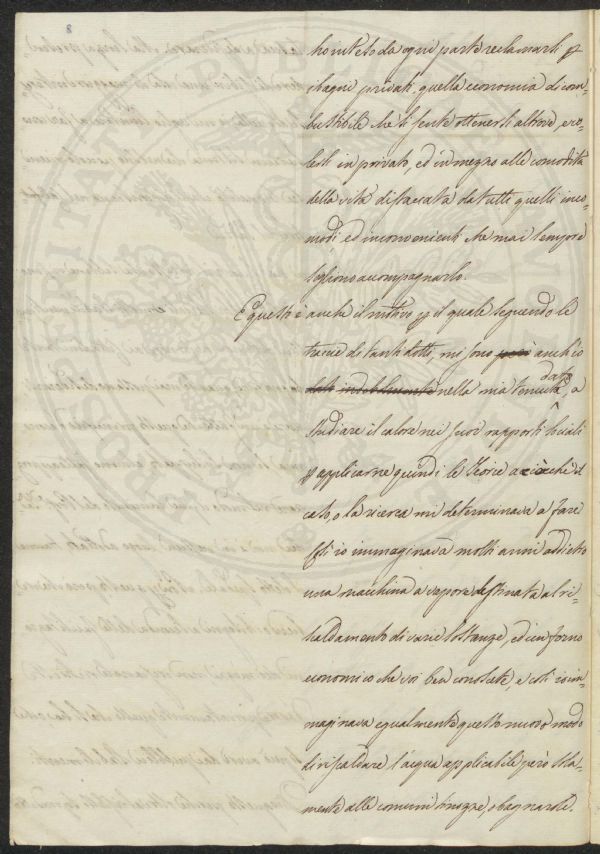 8
ho inteso da ogni parte reclamarsi p
i bagni privati quella economia di com-
bustibile che si sente ottenersi altrove, ero-
lesti in privato, ed in mezzo alle comodità
della vita distaccata da tutti quelli inco-
modi ed inconvenienti che mai sempre
sogliono accompagnarlo.
E questo è anche il motivo p il quale seguendo le
traccie di tanti dotti, mi sono però anch'io
dato indebitamente nella mia tenuità dato, a
studiare il calore nei suoi rapporti locali
p applicarne quindi le teorie a ciò che il
caso, o la ricerca mi determinava a fare
Così io immaginava molti anni addietro
una macchina a vapore destinata al ri-
scaldamento di varie stanze, ed un forno
economico che voi ben conoscete, e così io im-
maginava egualmente questo nuovo modo
di riscaldare l'acqua applicabile però sola-
mente alle comuni tinozze, o bagnarole.